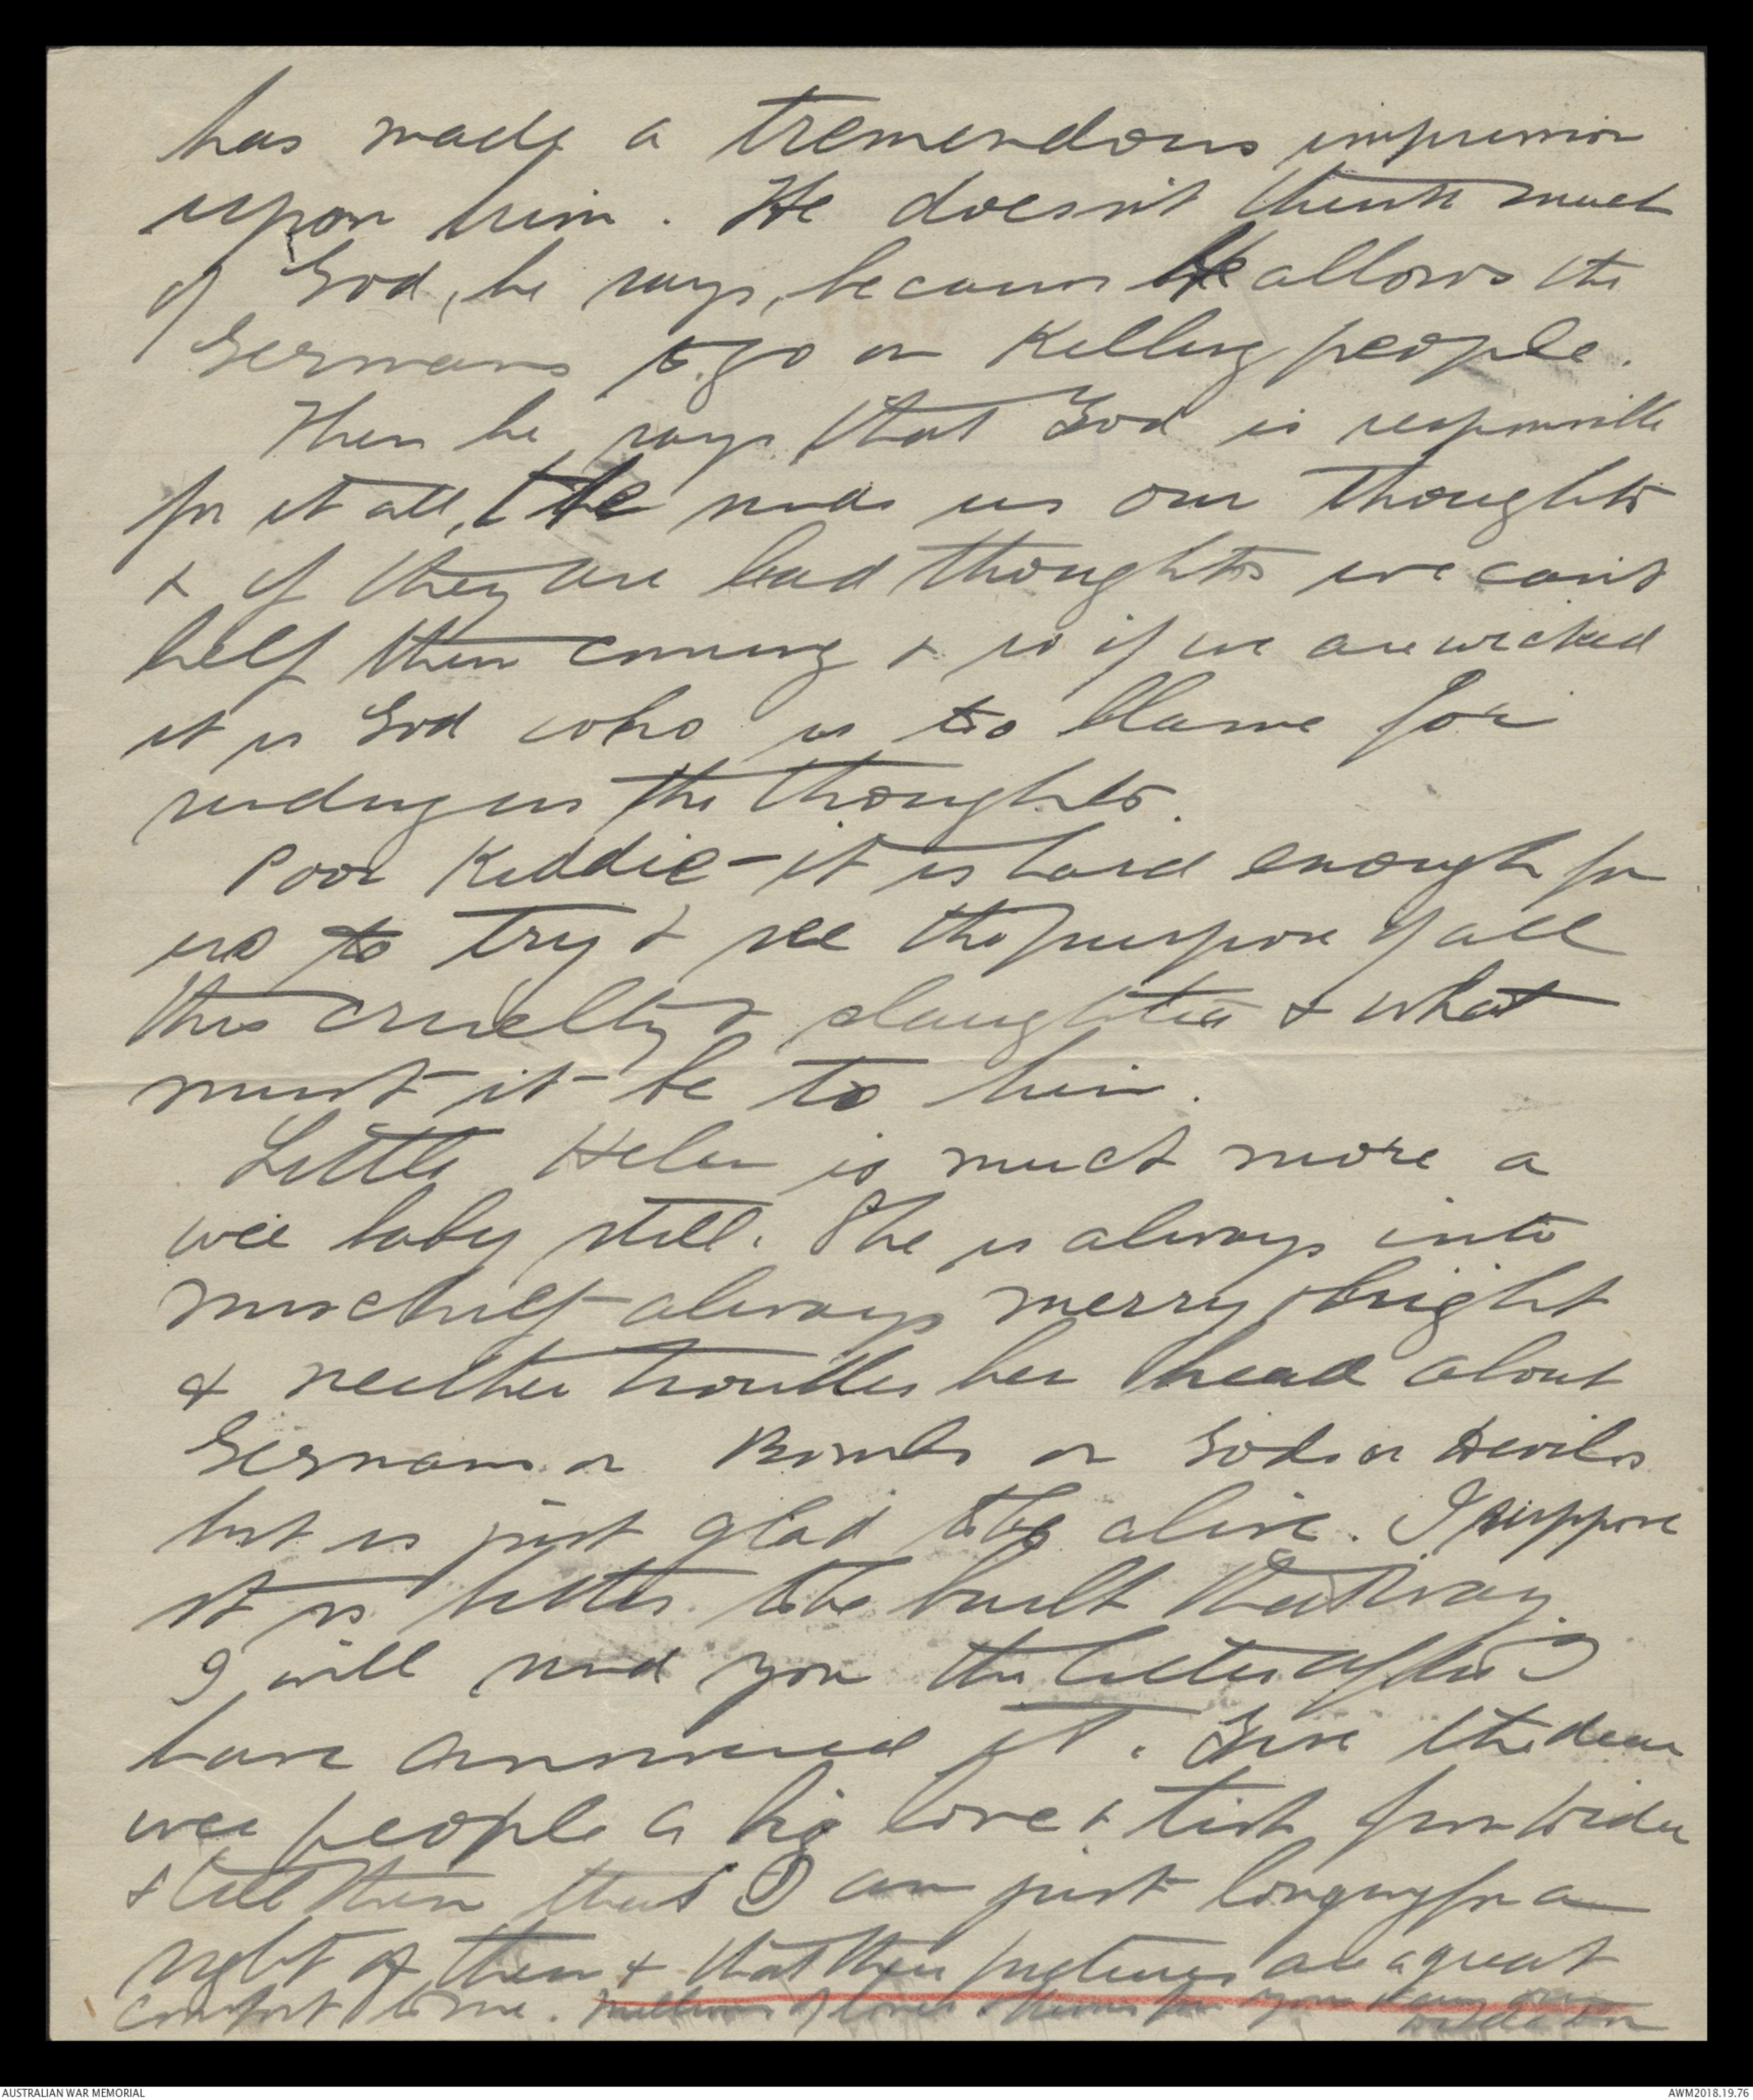 has made a tremendous impression
upon him. He doesn't think much
of God, he says, because He allows the
Germans to go on killing people.
Then he says that God is responsible
for it all, He sends us our thoughts
& if they are bad thoughts we can't
help them coming & so if we are wicked
it is God who is to blame for
sending us the thoughts.
Poor Kiddie - it is hard enough for
us to try & see the purpose of all
this cruelty & slaughter & what
must it be to him.
Little Helen is much more a
wee baby still. She is always into
mischief always merry & bright
& neither troubles her head about
Germans or Bombs or Gods or Devils
but is just glad to be alive. I suppose
it is better to be built that way.
I will send you the letter after I
have answered it. Give the dear
wee people a big love & tish from
& tell them that I am just longing for a
sight of them & that their pictures are a great
comfort to me. Millions of loves & kisses for your
AUSTRALIAN WAR MEMORIAL
AWM2018.19.76